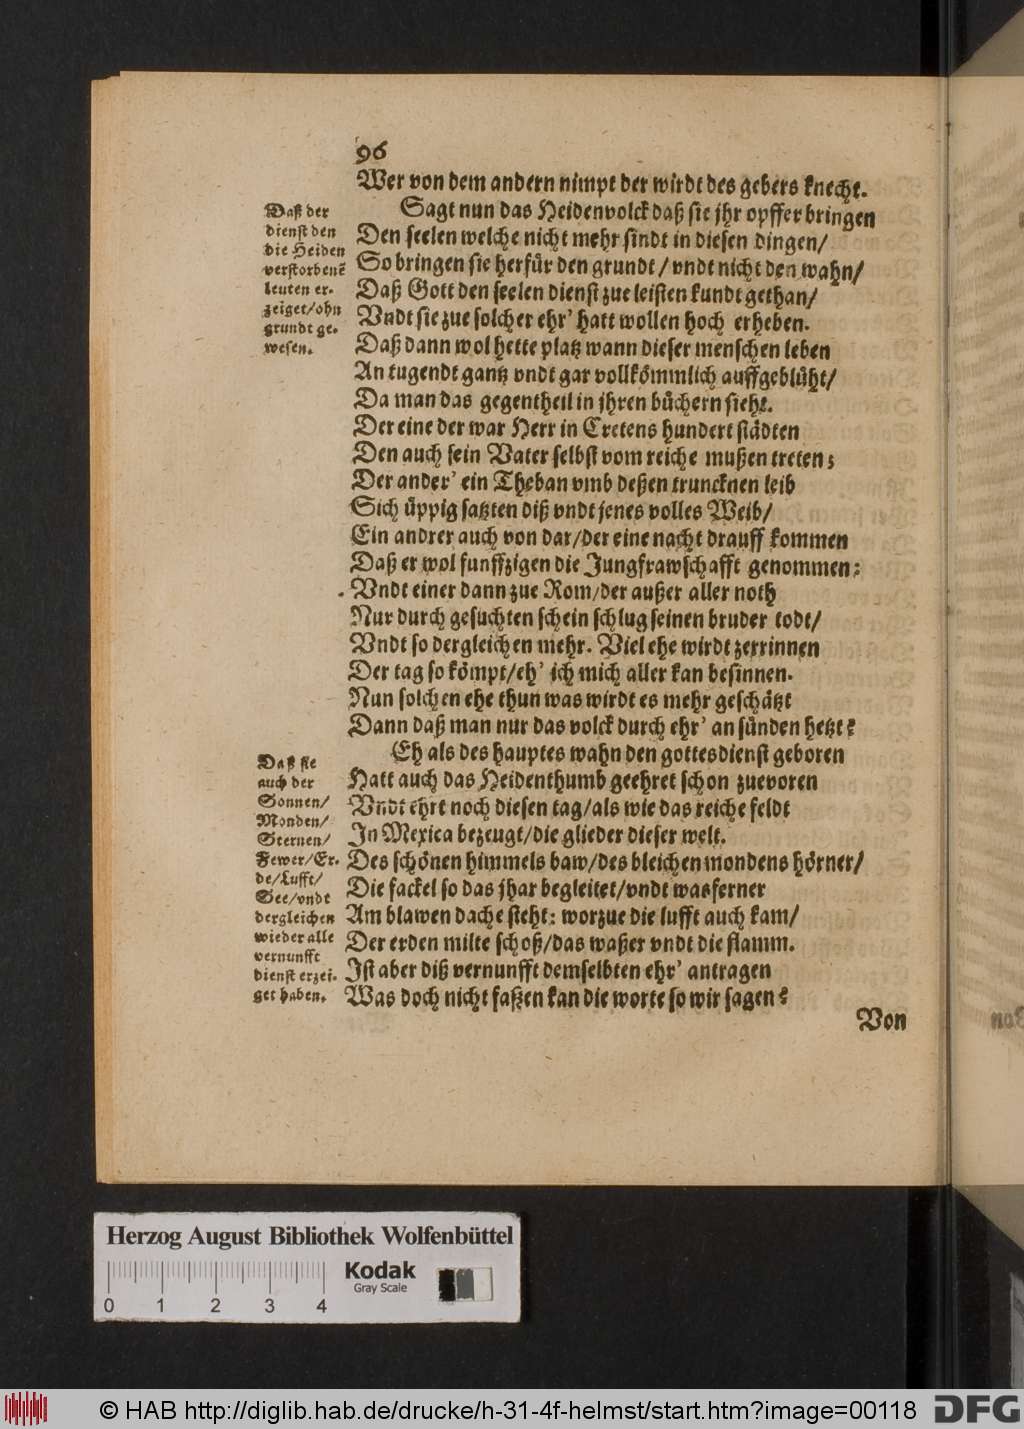 96
Wer von dem andern nimpt der wirdt des gebers knecht.
Sagt nun das Heidenvolck daß sie jhr opffer bringen
Den seelen welche nicht mehr sindt in diesen dingen/
So bringen sie herfür den grundt / vndt nicht den wahn/
Daß Gott den seelen dienst zue leisten kundt gethan/
Vndt sie zue solcher ehr' hatt wollen hoch erheben.
Daß dann wol hette platz wann dieser menschen leben
An tugendt gantz vndt gar vollkömmlich auffgeblüht/
Da man das gegentheil in jhren büchern sieht.
Der eine der war Herr in Cretens hundert städten
Den auch sein Vater selbst vom reiche mußen treten;
Der ander' ein Theban vmb deßen truncknen leib
Sich üppig satzten diß vndt jenes volles Weib/
Ein andrer auch von dar/der eine nacht drauff kommen
Daß er wol funffzigen die Jungfrawschafft genommen:
Vndt einer dann zue Rom/der außer aller noth
Nur durch gesuchten schein schlug seinen bruder todt/
Vndt so dergleichen mehr. Viel ehe wirdt zerrinnen
Der tag so kömpt/eh' ich mich aller kan besinnen.
Nun solchen ehe thun was wirdt es mehr geschätzt
Dann daß man nur das volck durch ehr' an sünden hetzt?
Eh als des hauptes wahn den gottesdienst geboren
Hatt auch das Heidenthumb geehret schon zuevoren
Vndt ehrt noch diesen tag/als wie das reiche feldt
In Mexica bezeugt/die glieder dieser welt.
Des schönen himmels baw/des bleichen mondens hörner/
Die fackel so das jhar begleitet/vndt was ferner
Am blawen dache steht: worzue die lufft auch kam/
Der erden milte schoß/das waßer vndt die flamm.
Ist aber diß vernunfft demselbten ehr' antragen
Was doch nicht faßen kan die worte so wir sagen?
Von
Daß der
dienst den
die Heiden
verstorbenē
leuten er-
zeiget/ohn
grundt ge-
wesen.
Daß sie
auch der
Sonnen/
Monden/
Sternen/
Fewer/Er-
de/Lufft/
See/vndt
dergleichen
wieder alle
vernunfft
dienst erzei-
get haben.
Herzog August Bibliothek Wolfenbüttel
Kodak
Gray Scale
0 1 2 3 4
© HAB http://diglib.hab.de/drucke/h-31-4f-helmst/start.htm?image=00118
DFG